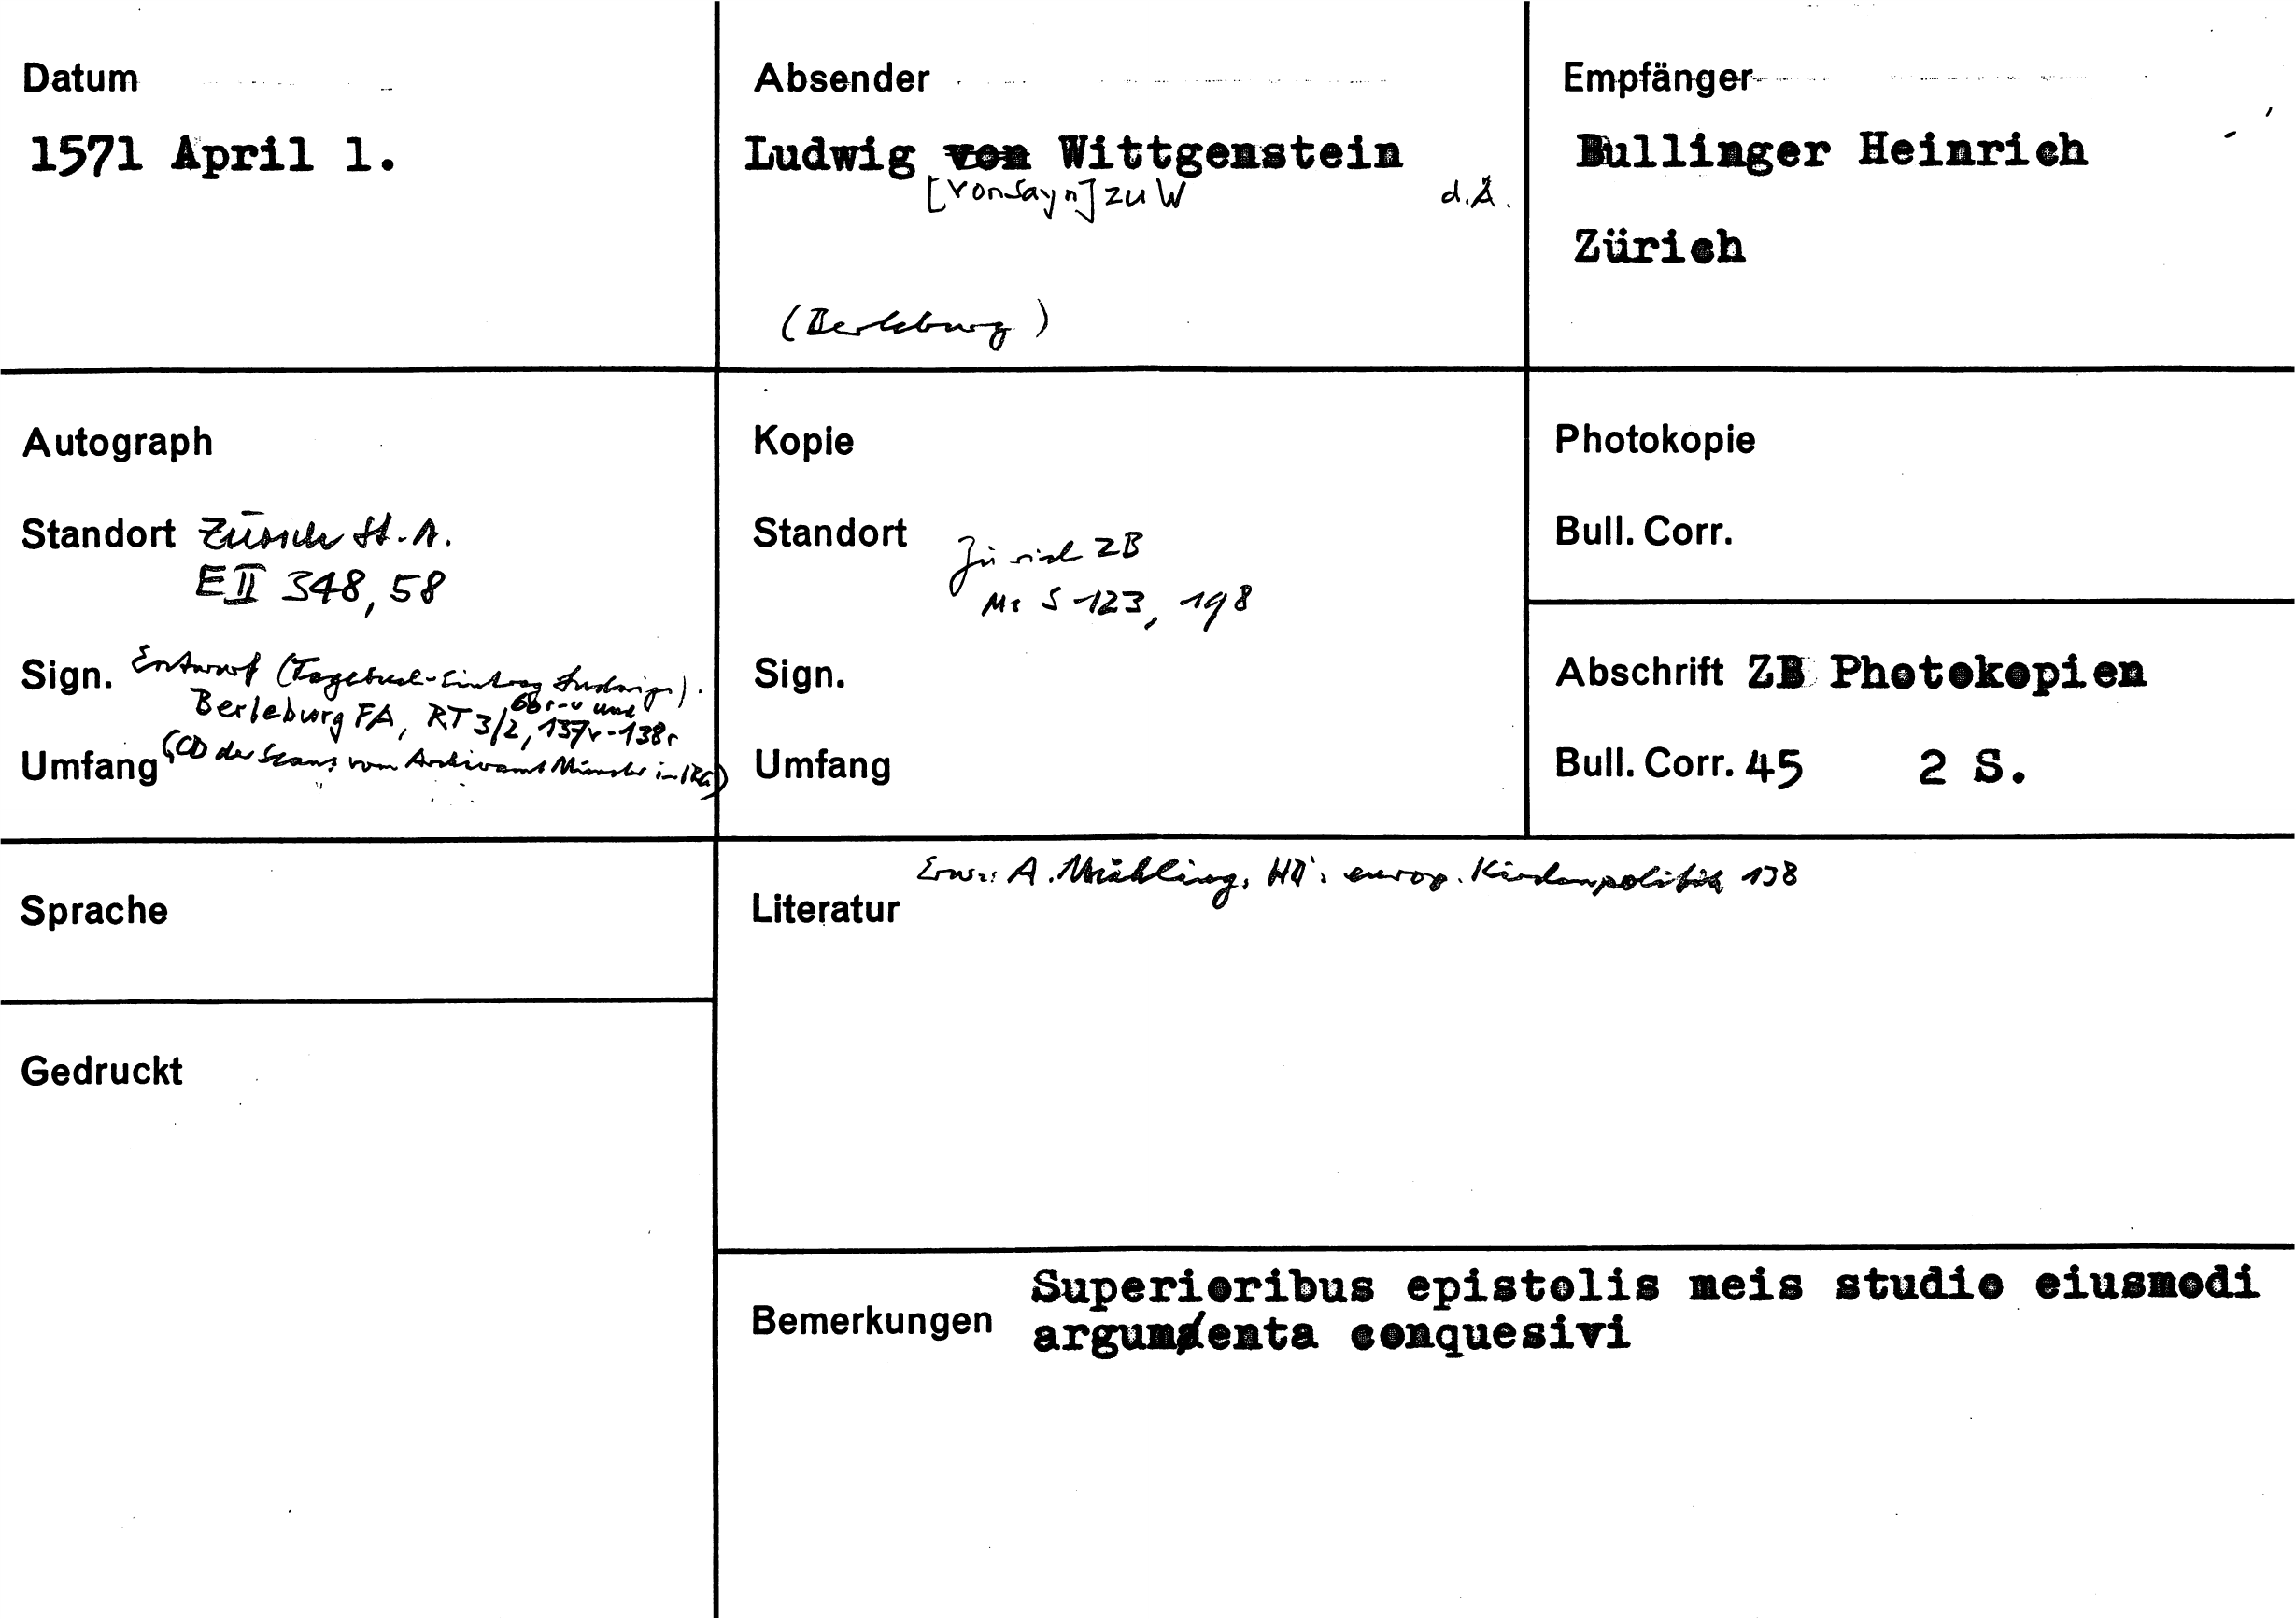 Datum
1571 April 1.
Absender
Ludwig von Wittgenstein
[von Sayn] zu W d.Ä.
(Berleburg)
Empfänger
Bullinger Heinrich
Zürich
Autograph
Standort Zürich St.A.
E II 348, 58
Sign. Entwurf (Tagebuch-Eintrag Ludwigs).
Berleburg FA, RT 3/2, 66r-v und 137v-138r
Umfang (CD der Scans vom Archivamt Münster in IRG)
Kopie
Standort Zürich ZB
Ms S 123, 198
Sign.
Umfang
Photokopie
Bull. Corr.
Abschrift ZB Photokopien
Bull. Corr. 45 2 S.
Sprache
Gedruckt
Literatur Erw.: A. Mühling, europ. Kirchenpolitik 138
Bemerkungen Superioribus epistolis meis studio eiusmodi
argumenta conquesivi